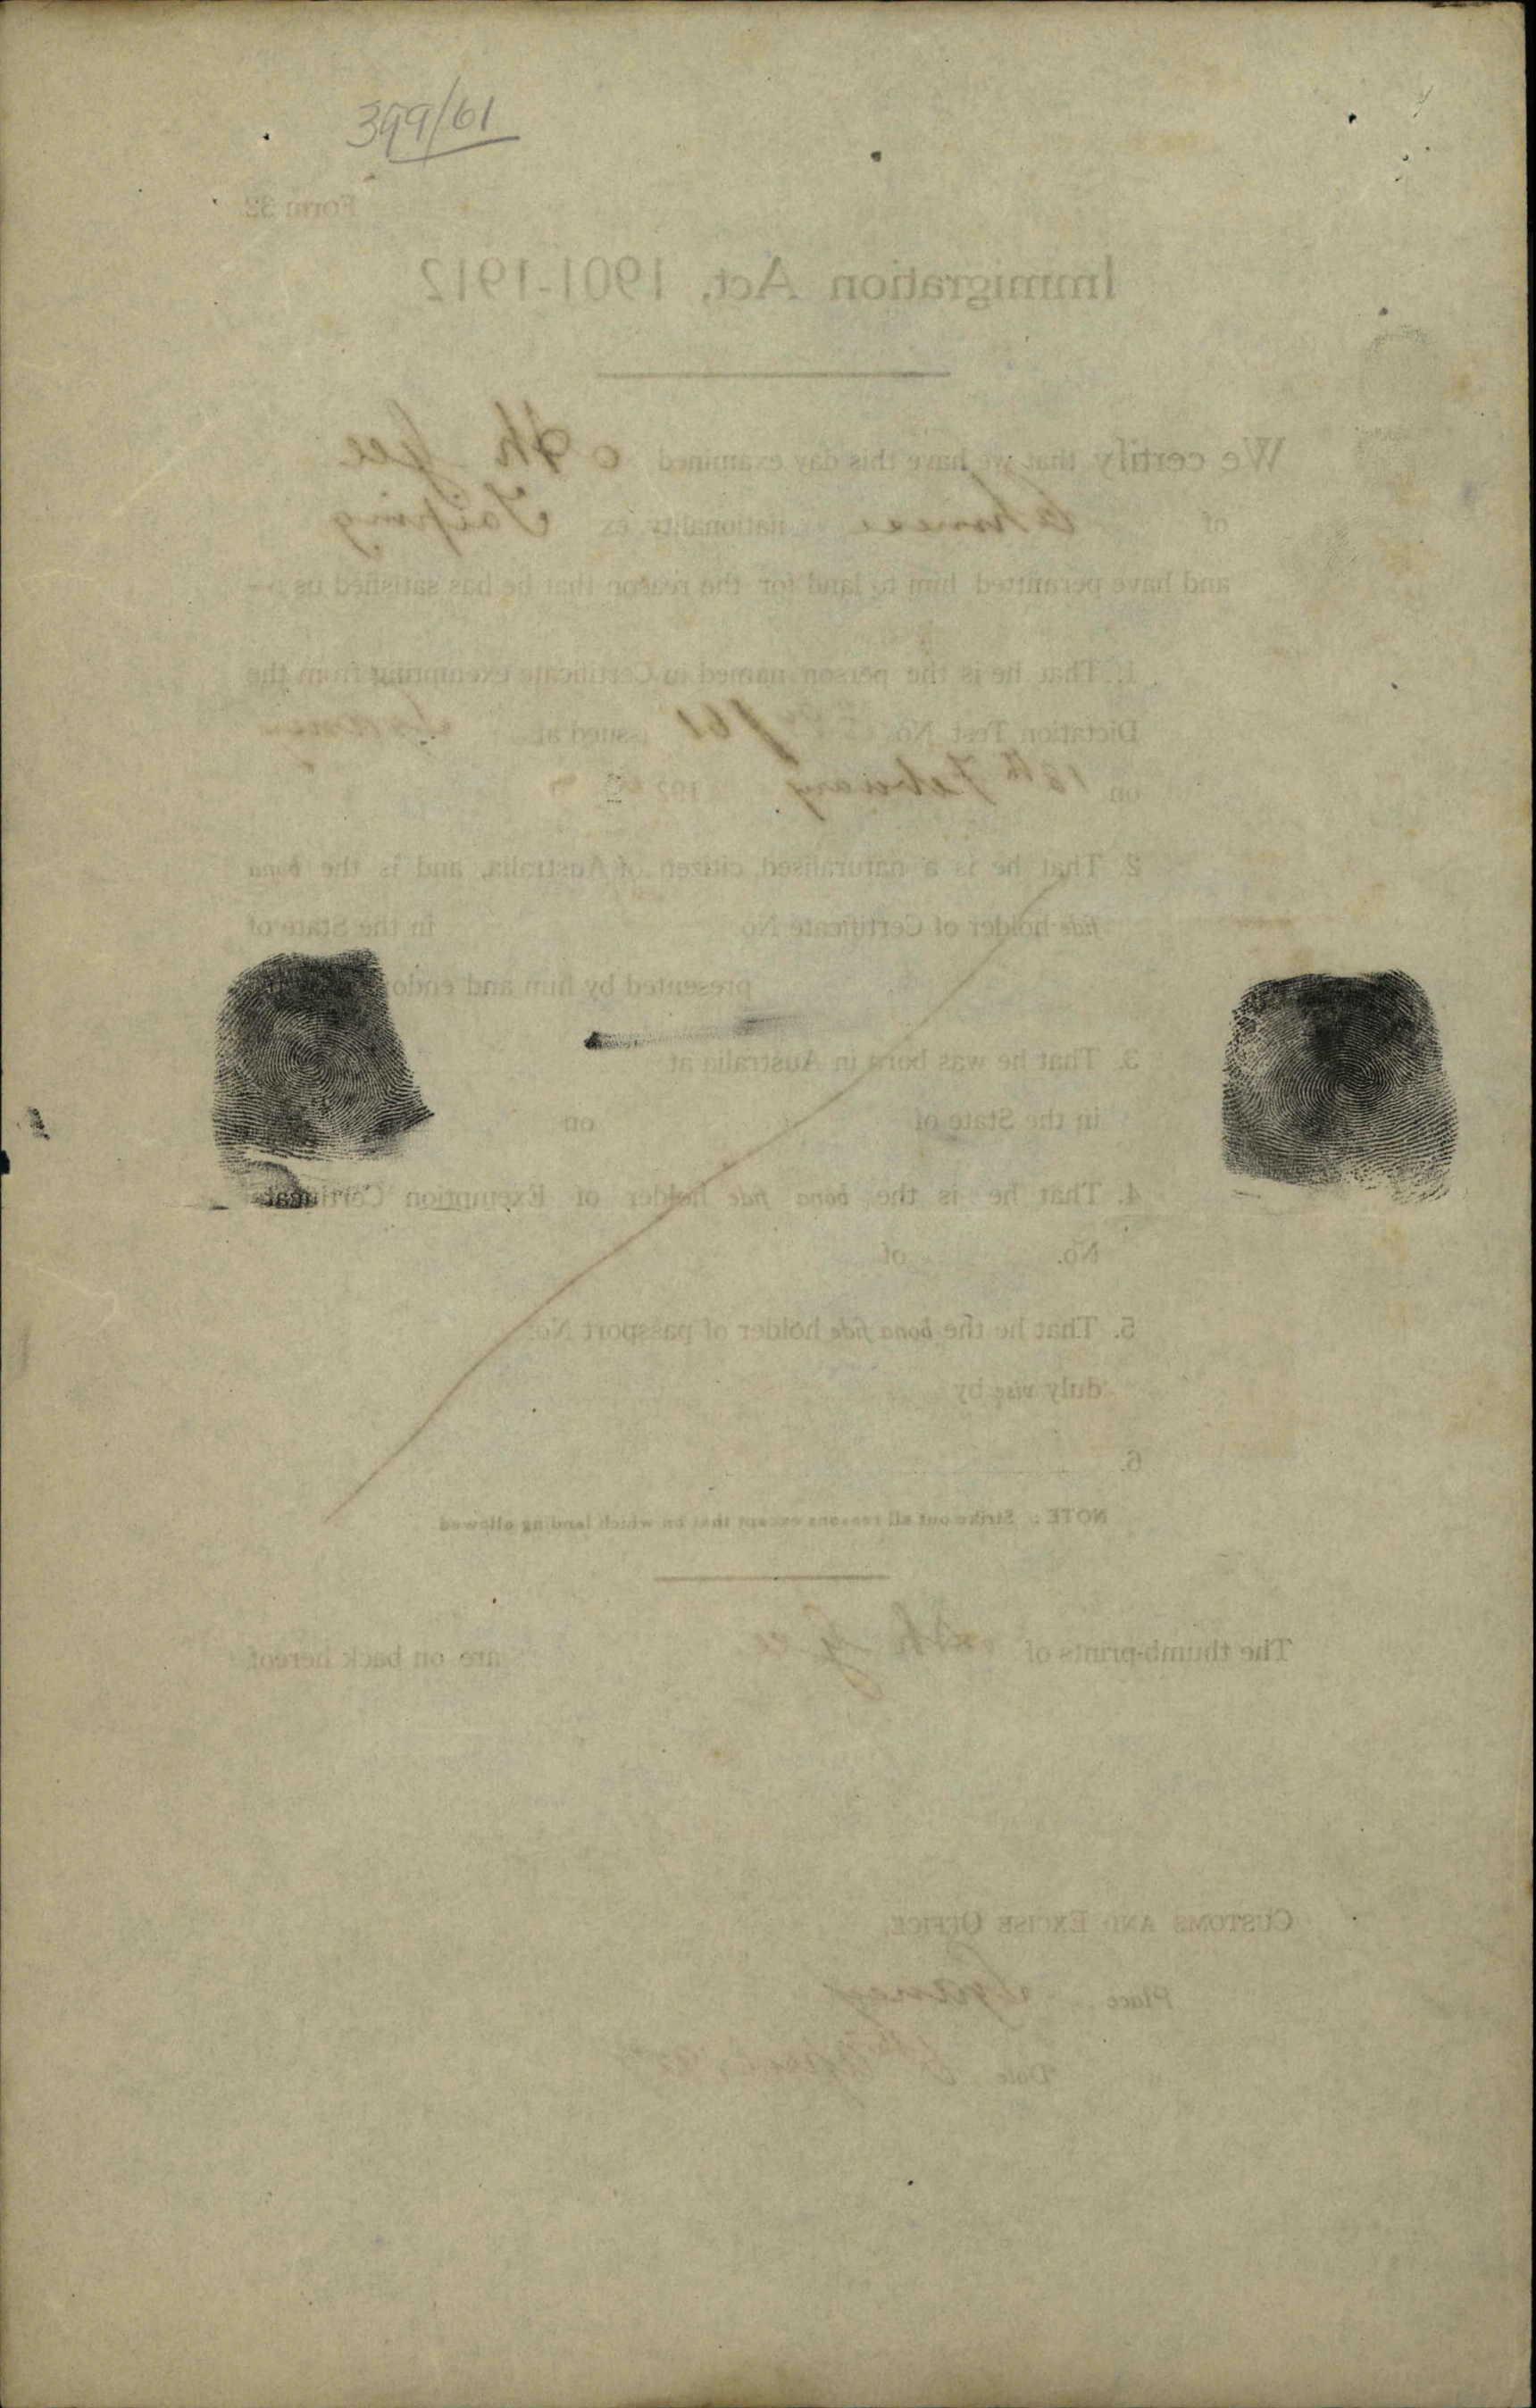 399/61
Form 32
Immigration Act, 1901-1912
We certify that we have this day examined Ah Gee
of Chinese nationality ex Taiping
and have permitted him to land for the reason that he has satisfied us :—
1. That he is the person named in Certificate exempting from the
Dictation Test No. 61 issued at Sydney
on 13th February 192
2. That he is a naturalised citizen of Australia, and is the bona
fide holder of Certificate No. in the State of
presented by him and
3. That he was born in Australia at
in the State of on
4. That he is the bona fide holder of Exemption Certificate
No. of
5. That he the bona fide holder of passport No.
duly vise by
6.
NOTE : Strike out all reasons except that on which landing allowed
The thumb-prints of Ah Gee are on back hereof
CUSTOMS AND EXCISE OFFICE,
Place Sydney
Date